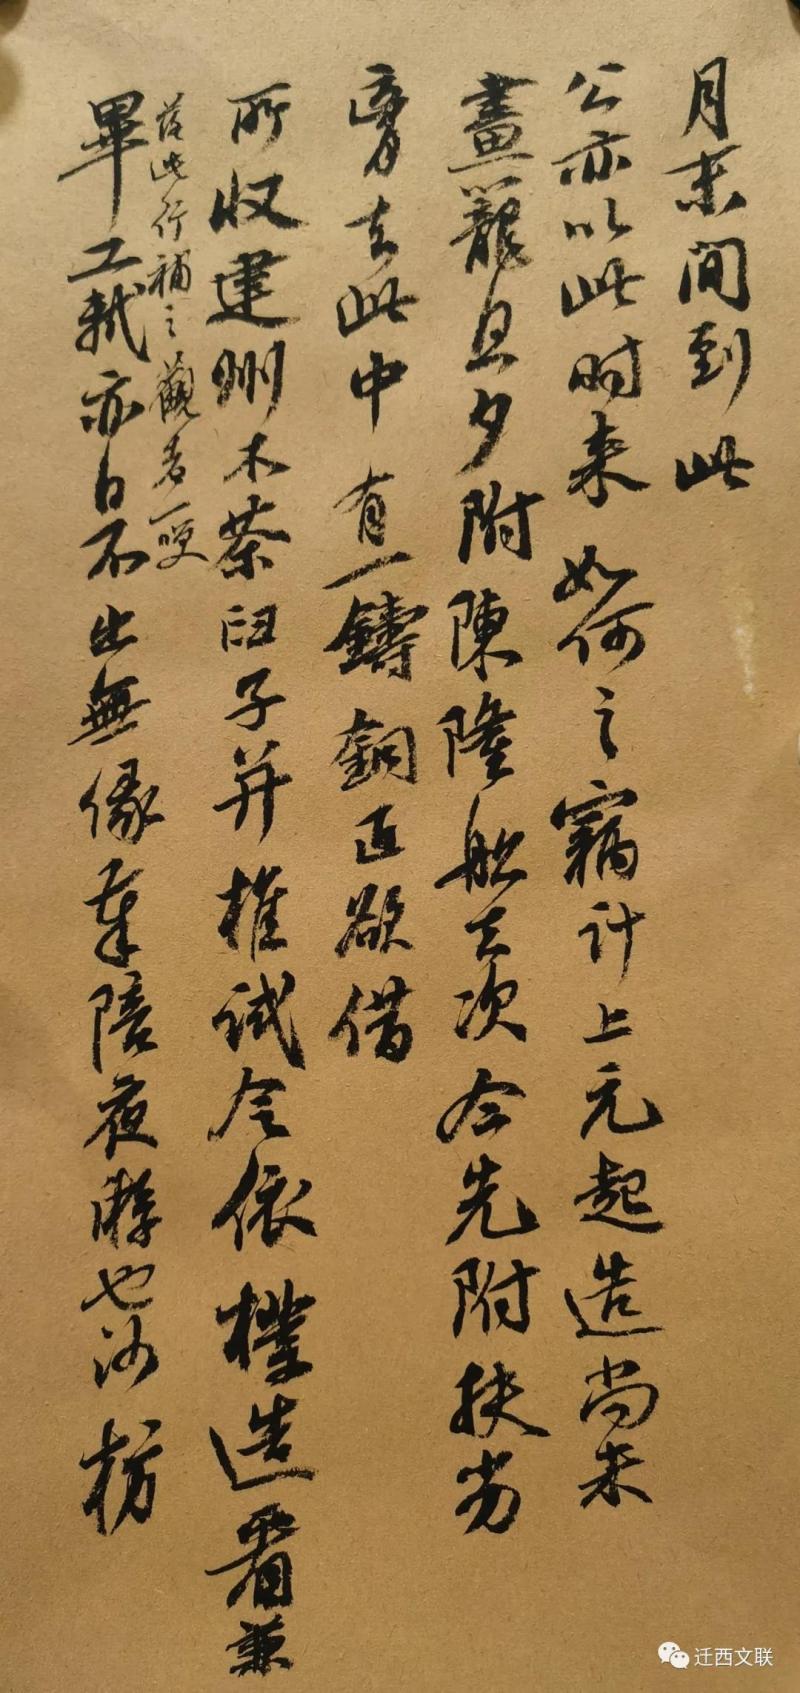 月末間到此
公亦以此时来如何之竊計上元起造尚未
畫籠旦夕附陳隆船去次今先附扶劣
膏去此中有一鑄銅匠欲借
所收建州木茶臼子并椎試令依樣造看兼
落此行補之觀者一
畢工軾亦自不出無緣奉陪夜游也沙枋
迁西文联